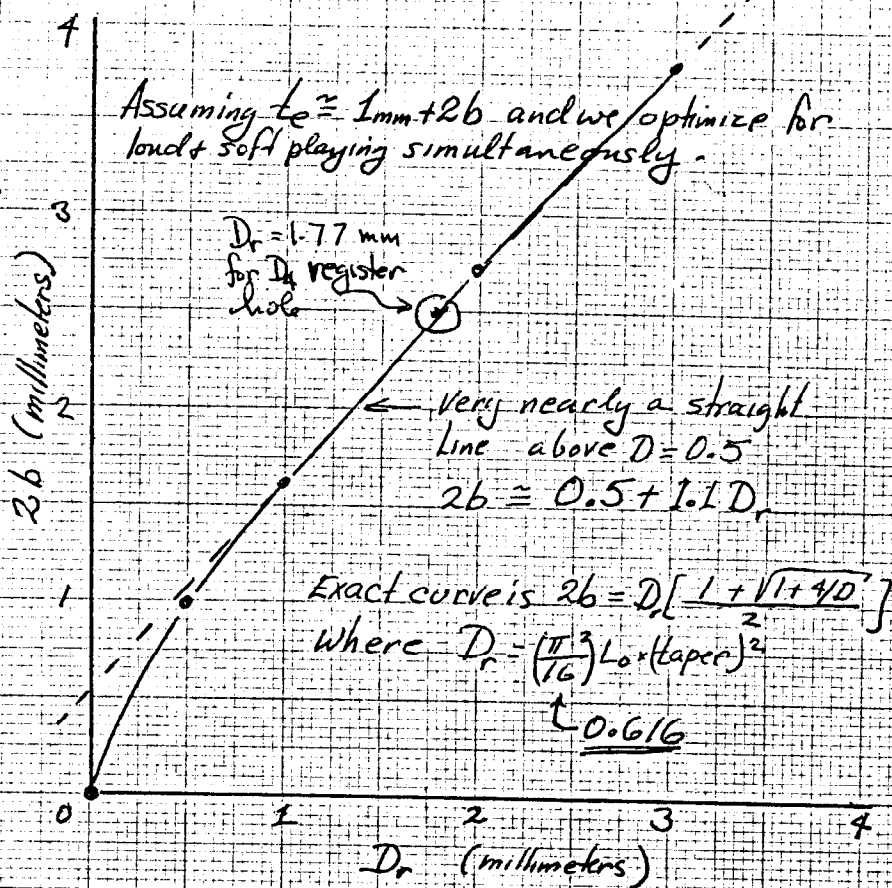 4
Assuming tₑ ≅ 1mm + 2b and we optimize for
loud + soft playing simultaneously.
3
Dᵣ = 1.77 mm
for D₄ register
hole
2b (millimeters)
2
very nearly a straight
Line above D = 0.5
2b ≅ 0.5 + 1.1 Dᵣ
1
Exact curve is 2b = Dᵣ[(1 + √(1 + 4/D))/2]
Where Dᵣ = (π²/16) L₀ × (taper)²
0.616
0 1 2 3 4
Dᵣ (millimeters)